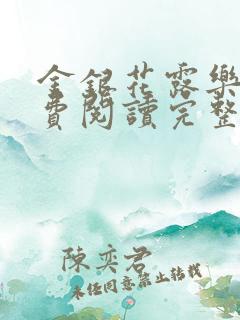 金銀花露樂
費閱讀完整
陳奕君
未任同意禁止轉載